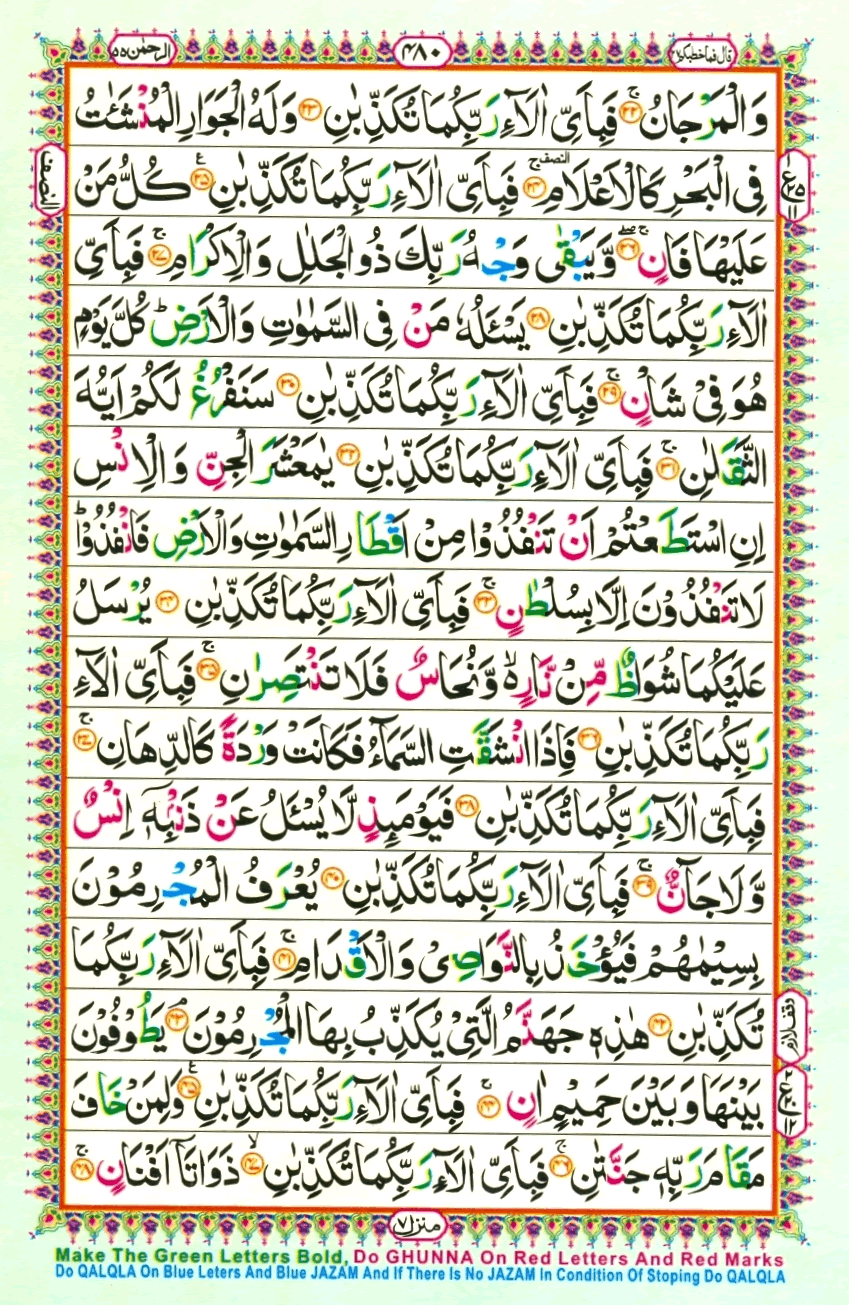 قال فما خطبكم ٢٧
٤٨٠
الرحمٰن ٥٥
وَالْمَرْجَانُ ۚ﴿۲۲﴾ فَبِاَىِّ اٰلَآءِ رَبِّكُمَا تُكَذِّبٰنِ ﴿۲۳﴾ وَلَهُ الْجَوَارِ الْمُنْشَئٰتُ
فِى الْبَحْرِ كَالْاَعْلَامِ ۚ﴿۲۴﴾ فَبِاَىِّ اٰلَآءِ رَبِّكُمَا تُكَذِّبٰنِ ﴿۲۵﴾ كُلُّ مَنْ
عَلَيْهَا فَانٍ ۚۖ﴿۲۶﴾ وَّيَبْقٰى وَجْهُ رَبِّكَ ذُو الْجَلٰلِ وَالْاِكْرَامِ ۚ﴿۲۷﴾ فَبِاَىِّ
اٰلَآءِ رَبِّكُمَا تُكَذِّبٰنِ ﴿۲۸﴾ يَسْئَلُهٗ مَنْ فِى السَّمٰوٰتِ وَالْاَرْضِ ؕ كُلَّ يَوْمٍ
هُوَ فِىْ شَاْنٍ ۚ﴿۲۹﴾ فَبِاَىِّ اٰلَآءِ رَبِّكُمَا تُكَذِّبٰنِ ﴿۳۰﴾ سَنَفْرُغُ لَكُمْ اَيُّهَ
الثَّقَلٰنِ ۚ﴿۳۱﴾ فَبِاَىِّ اٰلَآءِ رَبِّكُمَا تُكَذِّبٰنِ ﴿۳۲﴾ يٰمَعْشَرَ الْجِنِّ وَالْاِنْسِ
اِنِ اسْتَطَعْتُمْ اَنْ تَنْفُذُوْا مِنْ اَقْطَارِ السَّمٰوٰتِ وَالْاَرْضِ فَانْفُذُوْا ؕ
لَا تَنْفُذُوْنَ اِلَّا بِسُلْطٰنٍ ۚ﴿۳۳﴾ فَبِاَىِّ اٰلَآءِ رَبِّكُمَا تُكَذِّبٰنِ ﴿۳۴﴾ يُرْسَلُ
عَلَيْكُمَا شُوَاظٌ مِّنْ نَّارٍ ۙ وَّنُحَاسٌ فَلَا تَنْتَصِرٰنِ ۚ﴿۳۵﴾ فَبِاَىِّ اٰلَآءِ
رَبِّكُمَا تُكَذِّبٰنِ ﴿۳۶﴾ فَاِذَا انْشَقَّتِ السَّمَآءُ فَكَانَتْ وَرْدَةً كَالدِّهَانِ ۚ﴿۳۷﴾
فَبِاَىِّ اٰلَآءِ رَبِّكُمَا تُكَذِّبٰنِ ﴿۳۸﴾ فَيَوْمَئِذٍ لَّا يُسْئَلُ عَنْ ذَنْۢبِهٖۤ اِنْسٌ
وَّلَا جَآنٌّ ۚ﴿۳۹﴾ فَبِاَىِّ اٰلَآءِ رَبِّكُمَا تُكَذِّبٰنِ ﴿۴۰﴾ يُعْرَفُ الْمُجْرِمُوْنَ
بِسِيْمٰهُمْ فَيُؤْخَذُ بِالنَّوَاصِىْ وَالْاَقْدَامِ ۚ﴿۴۱﴾ فَبِاَىِّ اٰلَآءِ رَبِّكُمَا
تُكَذِّبٰنِ ﴿۴۲﴾ هٰذِهٖ جَهَنَّمُ الَّتِىْ يُكَذِّبُ بِهَا الْمُجْرِمُوْنَ ۘ﴿۴۳﴾ يَطُوْفُوْنَ
بَيْنَهَا وَبَيْنَ حَمِيْمٍ اٰنٍ ۚ﴿۴۴﴾ فَبِاَىِّ اٰلَآءِ رَبِّكُمَا تُكَذِّبٰنِ ﴿۴۵﴾ وَلِمَنْ خَافَ
مَقَامَ رَبِّهٖ جَنَّتٰنِ ۚ﴿۴۶﴾ فَبِاَىِّ اٰلَآءِ رَبِّكُمَا تُكَذِّبٰنِ ۙ﴿۴۷﴾ ذَوَاتَاۤ اَفْنَانٍ ۚ﴿۴۸﴾
النصف
وقف لازم
منزل ٧
Make The Green Letters Bold, Do GHUNNA On Red Letters And Red Marks
Do QALQLA On Blue Leters And Blue JAZAM And If There Is No JAZAM In Condition Of Stoping Do QALQLA